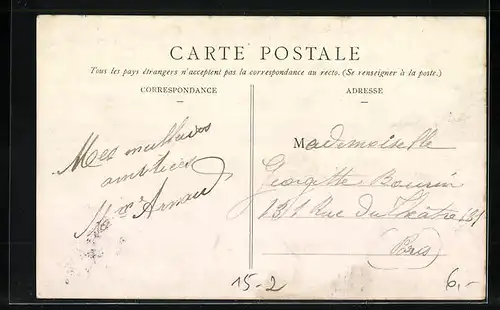 CARTE POSTALE
Tous les pays étrangers n'acceptent pas la correspondance au recto. (Se renseigner à la poste.)
CORRESPONDANCE
ADRESSE
Mes meilleures
amitiés
Mme Arnaud
Mademoiselle
Georgette
131 Rue du Théâtre 131
15-2
6,-